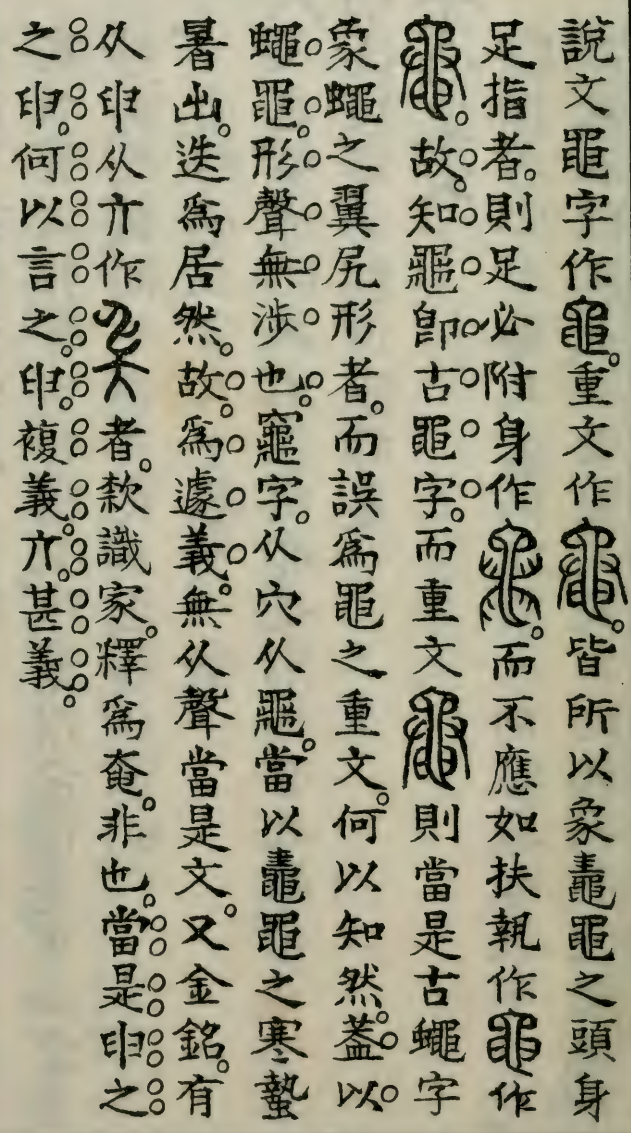 說文黽字作。重文作。皆所以象鼃黽之頭身
足指者。則足必附身作。而不應如扶執作作
。故。知鼆卽古黽字。而重文則當是古蠅字
象蠅之翼尻形者。而誤爲黽之重文。何以知然。蓋以
蠅黽。形聲無涉也。竈字。从穴从黽。當以鼃黽之寒蟄
暑出。迭爲居然。故。爲遽義。無从聲當是文。又金銘。有
从申从亣作者。款識家。釋爲奄。非也。當是申之
之申。何以言之。申。複義。亣。甚義。